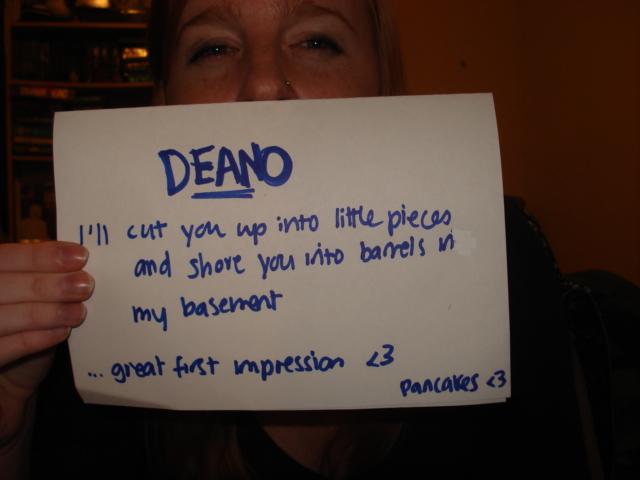 DEANO
I'll cut you up into little pieces
and shove you into barrels in
my basement
... great first impression <3
Pancakes <3